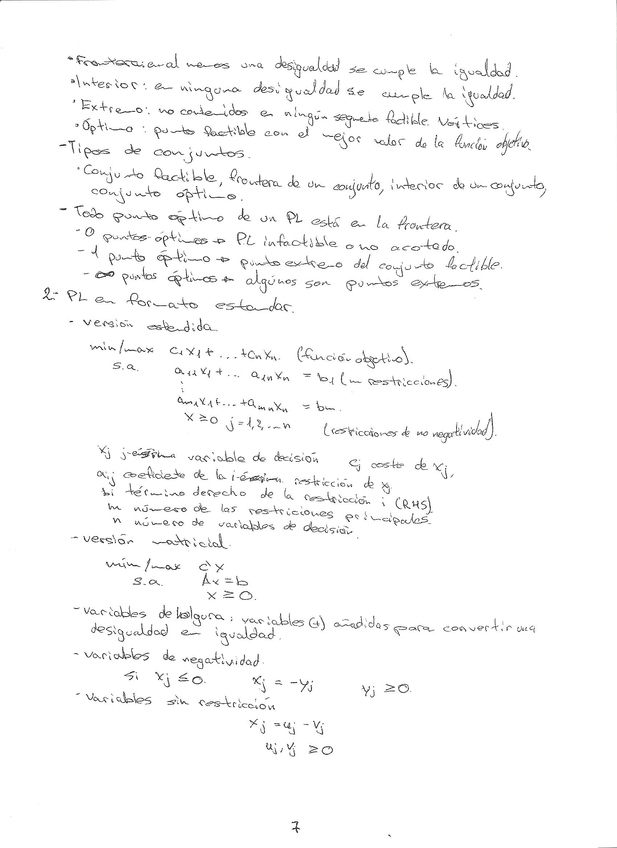 • Frontera: en al menos una desigualdad se cumple la igualdad.
• Interior: en ninguna desigualdad se cumple la igualdad.
• Extremo: no contenidos en ningún segmeto factible. Vértices.
• Óptimo: punto factible con el mejor valor de la función objetivo.
- Tipos de conjuntos.
• Conjunto factible, frontera de un conjunto, interior de un conjunto,
conjunto óptimo.
- Todo punto óptimo de un PL está en la frontera.
- 0 puntos óptimos → PL infactible o no acotado.
- 1 punto óptimo → punto extremo del conjunto factible.
- ∞ puntos óptimos → algúnos son puntos extremos.
2.- PL en formato estandar.
- versión extendida
min/max c₁x₁ + ... + cₙxₙ. (función objetivo).
s.a. a₁₁x₁ + ... a₁ₙxₙ = b₁ (m restricciones).
⋮
aₘ₁x₁ + ... + aₘₙxₙ = bₘ.
x ≥ 0 j = 1, 2, ... n (restricciones de no negatividad).
xj j-ésima variable de decisión cj coste de xj,
aij coeficiete de la i-ésima restricción de xj
bi término derecho de la restricción i (RHS)
m número de las restriciones principales
n número de variables de decisión.
- versión matricial.
min/max c'x
s.a. Ax = b
x ≥ 0.
- variables de holgura: variables (+) añadidas para convertir una
desigualdad en igualdad.
- variables de negatividad.
si xj ≤ 0. xj = -yj yj ≥ 0.
- Variables sin restricción
xj = uj - vj
uj, vj ≥ 0
7